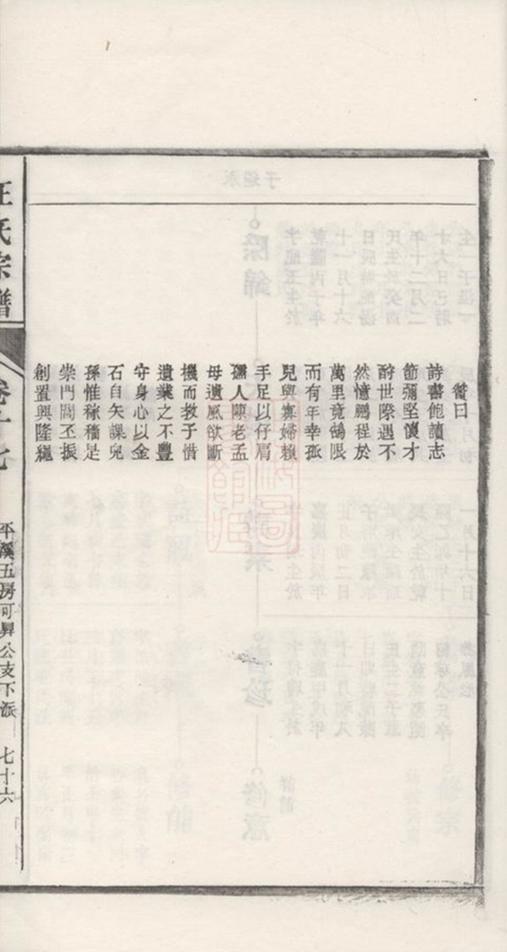 贊曰
詩書飽讀志
節彌堅懷才
時世際遇不
然憶鵬程於
萬里竟鵠限
而有年幸孤
兒與寡婦賴
手足以仔肩
孀人陳老孟
母遺風欲斷
機而教子惜
遺業之不豐
守身心以金
石自矢課兒
孫惟稼穡足
崇門閭丕振
創置興隆龝
汪氏宗譜
卷十七
平溪五房可昇公支下派
七十六